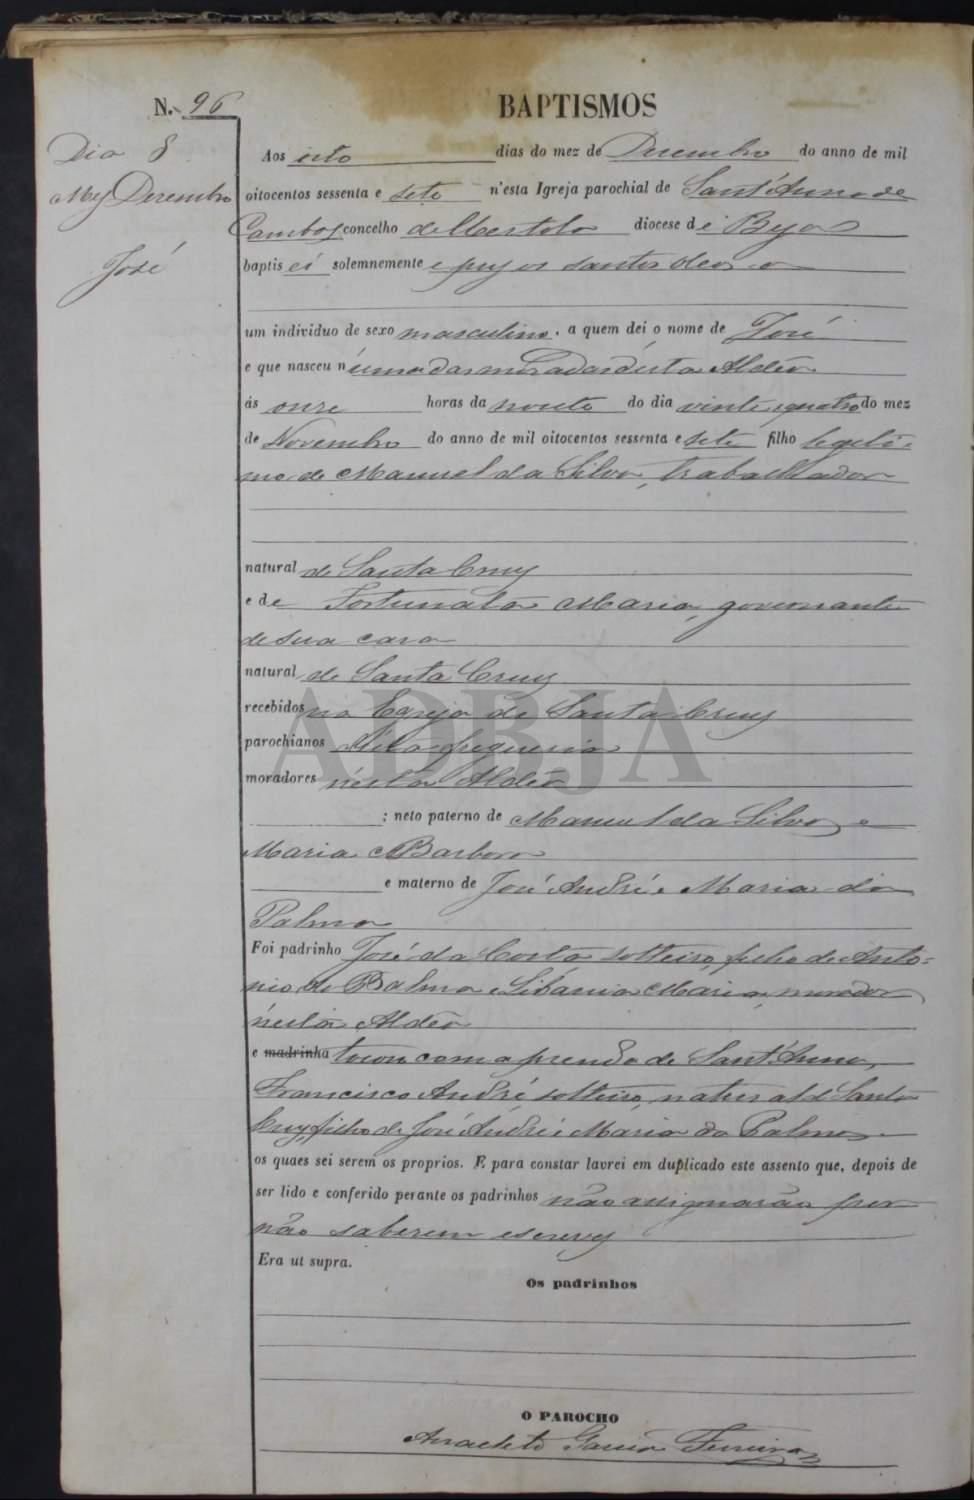 N. 96
BAPTISMOS
Dia 8
Mez Dezembro
José
Aos oito dias do mez de Dezembro do anno de mil
oitocentos sessenta e sete n'esta Igreja parochial de Sant'Anna de
Cambas concelho de Mertola diocese de Beja
baptisei solemnemente e puz os santos oleos a
um individuo de sexo masculino, a quem dei o nome de José
e que nasceu n'uma das moradas desta Aldêa
ás onze horas da noute do dia vinte e quatro do mez
de Novembro do anno de mil oitocentos sessenta e sete filho legiti=
mo de Manuel da Silva, trabalhador
natural de Santa Cruz
e de Fortunata Maria, governante
de sua casa
natural de Santa Cruz
recebidos na Egreja de Santa Cruz
parochianos d'esta freguesia
moradores nésta Aldêa
; neto paterno de Manuel da Silva e
Maria Barbora
e materno de José André e Maria da
Palma
Foi padrinho José da Costa solteiro, filho de Anto=
nio de Palma e Libania Maria, morador
nésta Aldêa
e madrinha tocou com a prenda de Sant'Anna,
Francisco André solteiro, natural de Santa
Cruz, filho de José André e Maria da Palma
os quaes sei serem os proprios. E para constar lavrei em duplicado este assento que, depois de
ser lido e conferido perante os padrinhos não assignarão por
não saberem escrever
Era ut supra.
Os padrinhos
O PAROCHO
Anacleto Garcia Ferreira
ADBJA